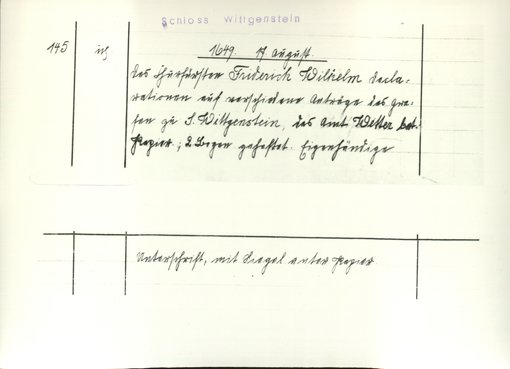 Schloss Wittgenstein
145
1649. 17 August.
Des Churfürsten Friderich Wilhelm Decla-
rationen auf verschiedene Anträge des Gra-
fen zu S. Wittgenstein, das Amt Wetter bet.
Papier; 2 Bogen geheftet. Eigenhändige
Unterschrift, mit Siegel unter Papier